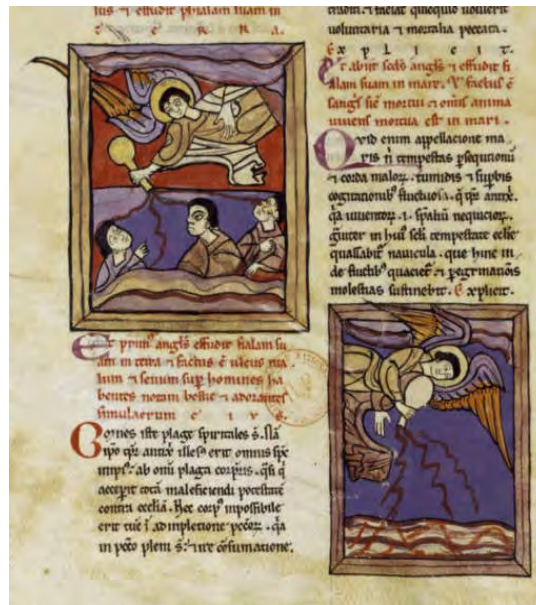 ius ⁊ effudit phialam suam in
t e r r a.
Et prim' angls effudit fialam su
am in terra ⁊ factus ē uleus ma
lum ⁊ seuum sup homines ha
bentes notam bestie ⁊ adorantes
simulacrum e i v s.
Omnes iste plage spiritales s̄.
erit omnis
ab omi plaga corpris. q̄si q̄
accepit totā maleficiendi potestatē
contra ecclīā. Hec corp' inpossibile
erit adinpletione q̄a
in pctō pleni s̄. ⁊ ire cōsumatione.
tradit. ⁊ faciat quequid uoluerit
uoluntaria ⁊ mortalia peccata.
E x p l i c i t.
Et abiit scds angls ⁊ effudit fi
alam suam in mare. ⁊ factus ē
sangs sic̄ mortui ⁊ omis anima
uiuens mortua est in mari.
Quid enim appellacione ma
ris n̄ tempestas psequtionū
⁊ corda maloꝝ. tumidis ⁊ supbis
cogitationib' fluctuosa. antix̄.
q̄a uiuentoꝝ .i. nequicioꝝ.
in seclī tempestate eccle
quassabit nauicula. que hinc in
de fluctib' ⁊ pegrinationis
molestias sustinebit. Explicit.